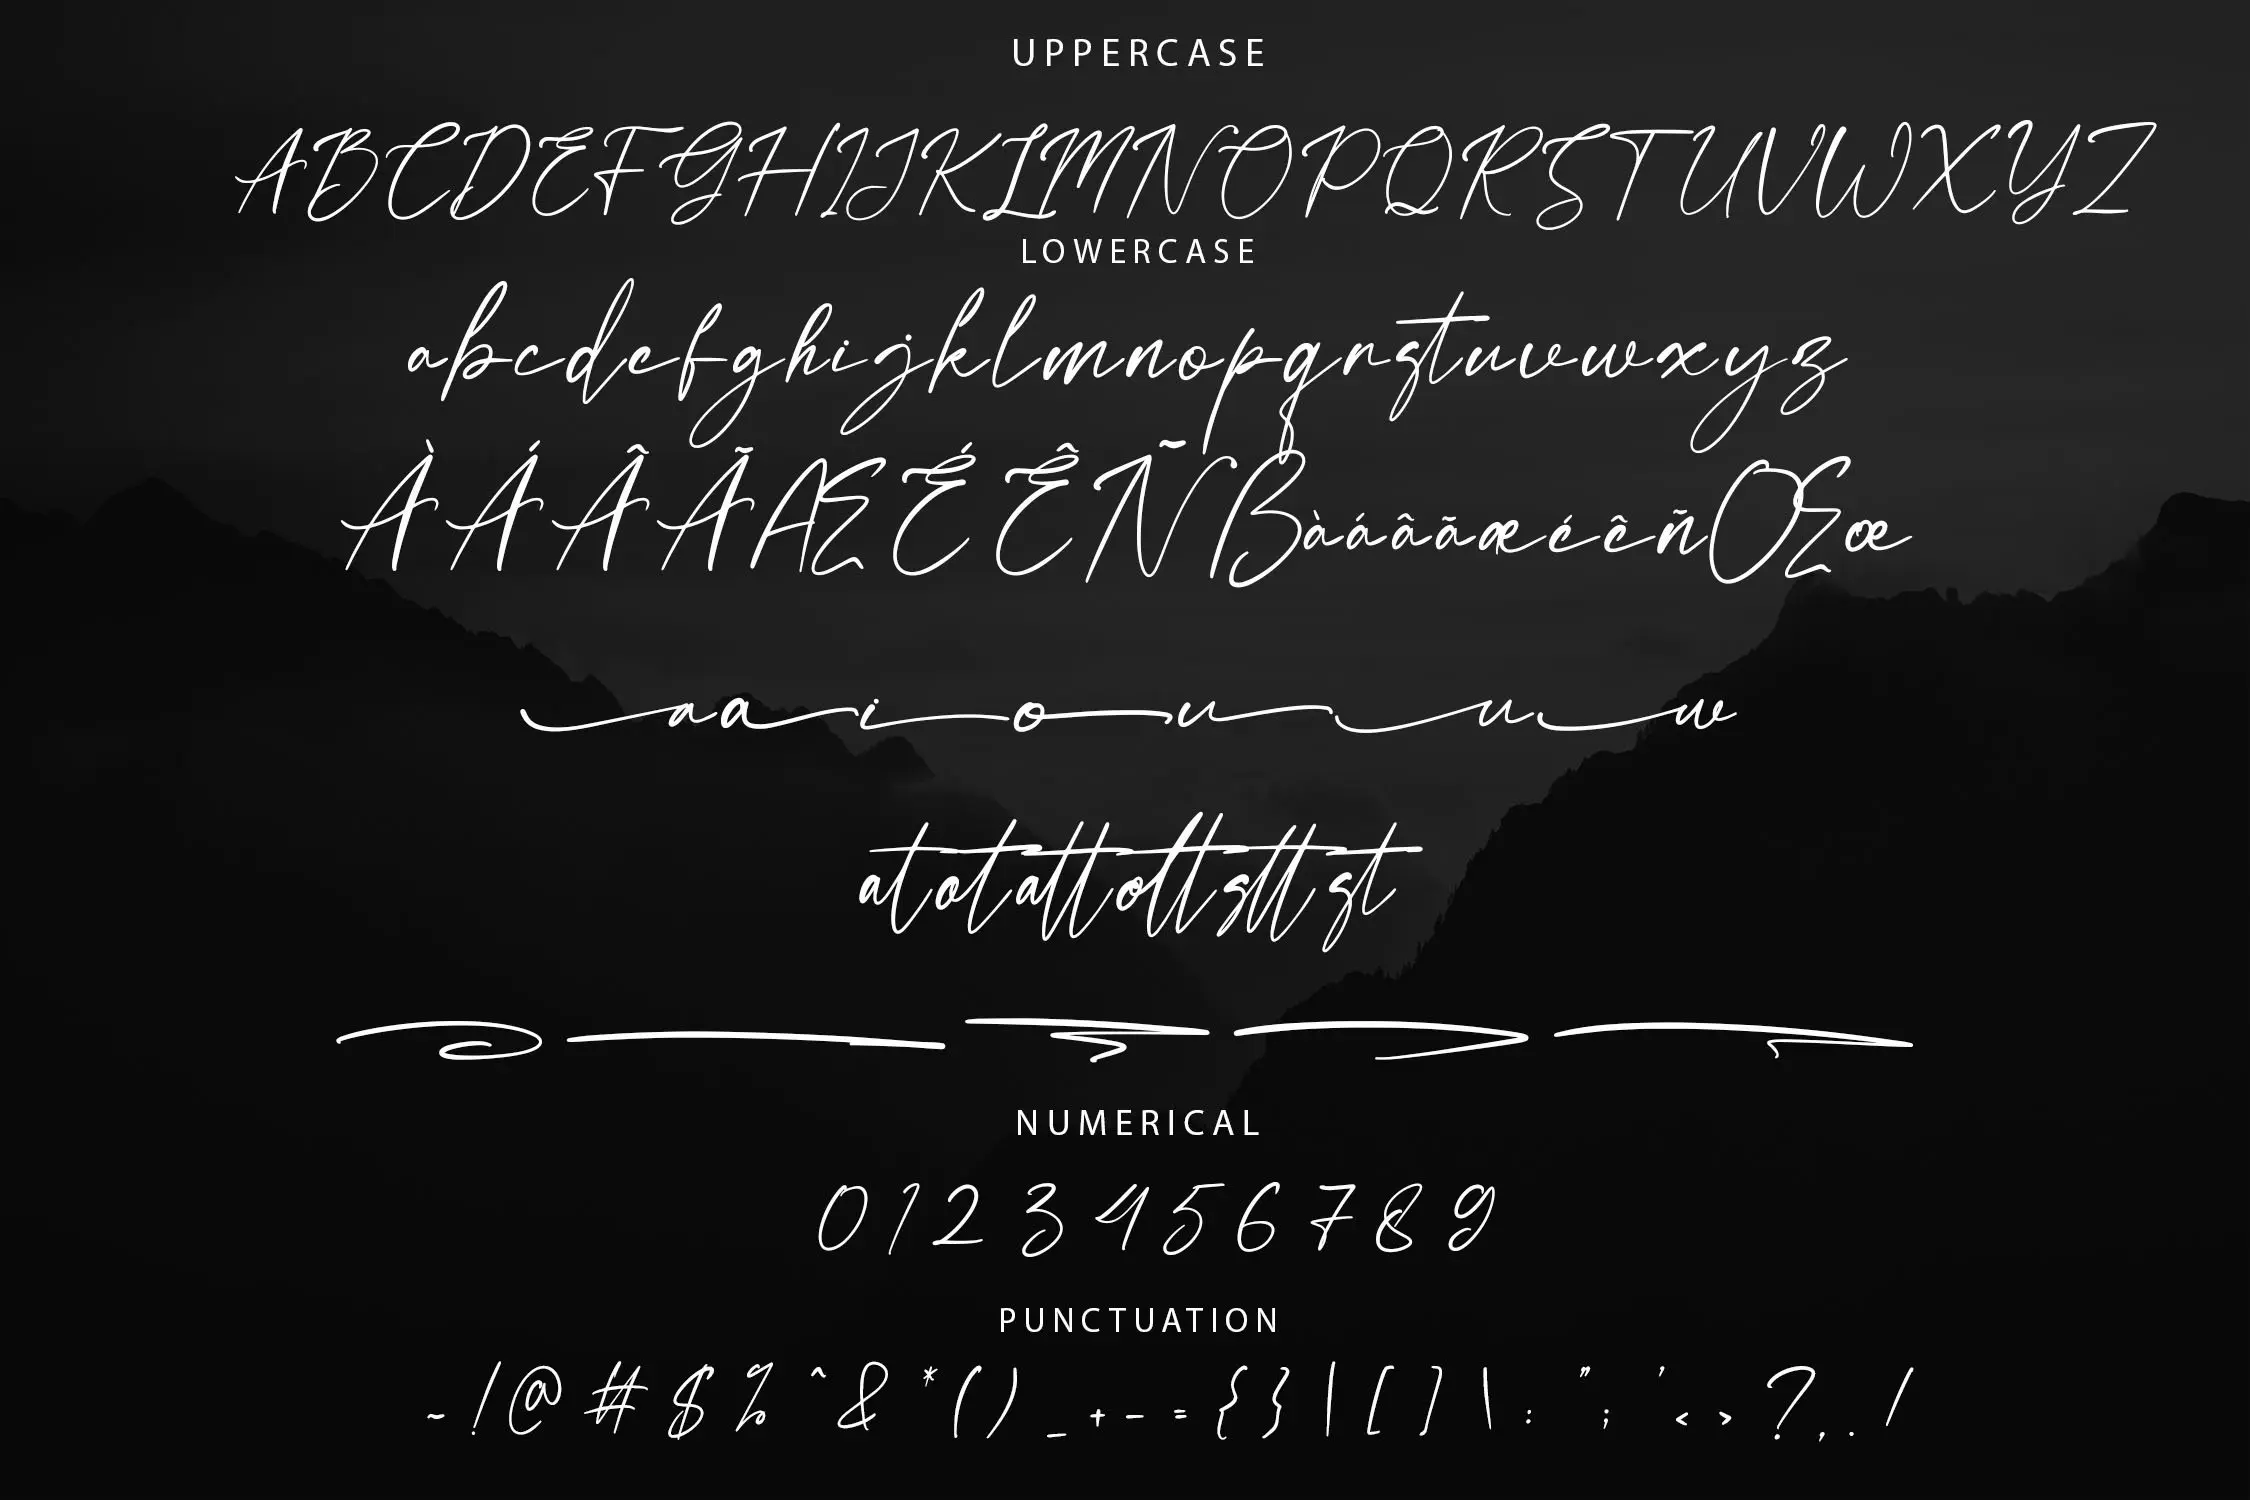 UPPERCASE
ABCDEFGHIJKLMNOPQRSTUVWXYZ
LOWERCASE
abcdefghijklmnopqrstuvwxyz
ÀÁÂÃÆÉÊÑBàáâãæéêñŒœ
aaiouuw
atotattottsttst
NUMERICAL
0123456789
PUNCTUATION
~!@#$%^&*()_+-={}|[]\:";'<>?,./